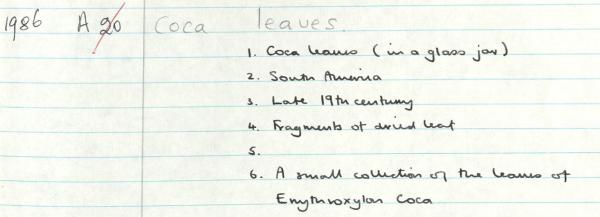 1986 A 20 Coca leaves.
1. Coca leaves (in a glass jar)
2. South America
3. Late 19th century
4. Fragments of dried leaf
5.
6. A small collection of the leaves of
Erythroxylon Coca